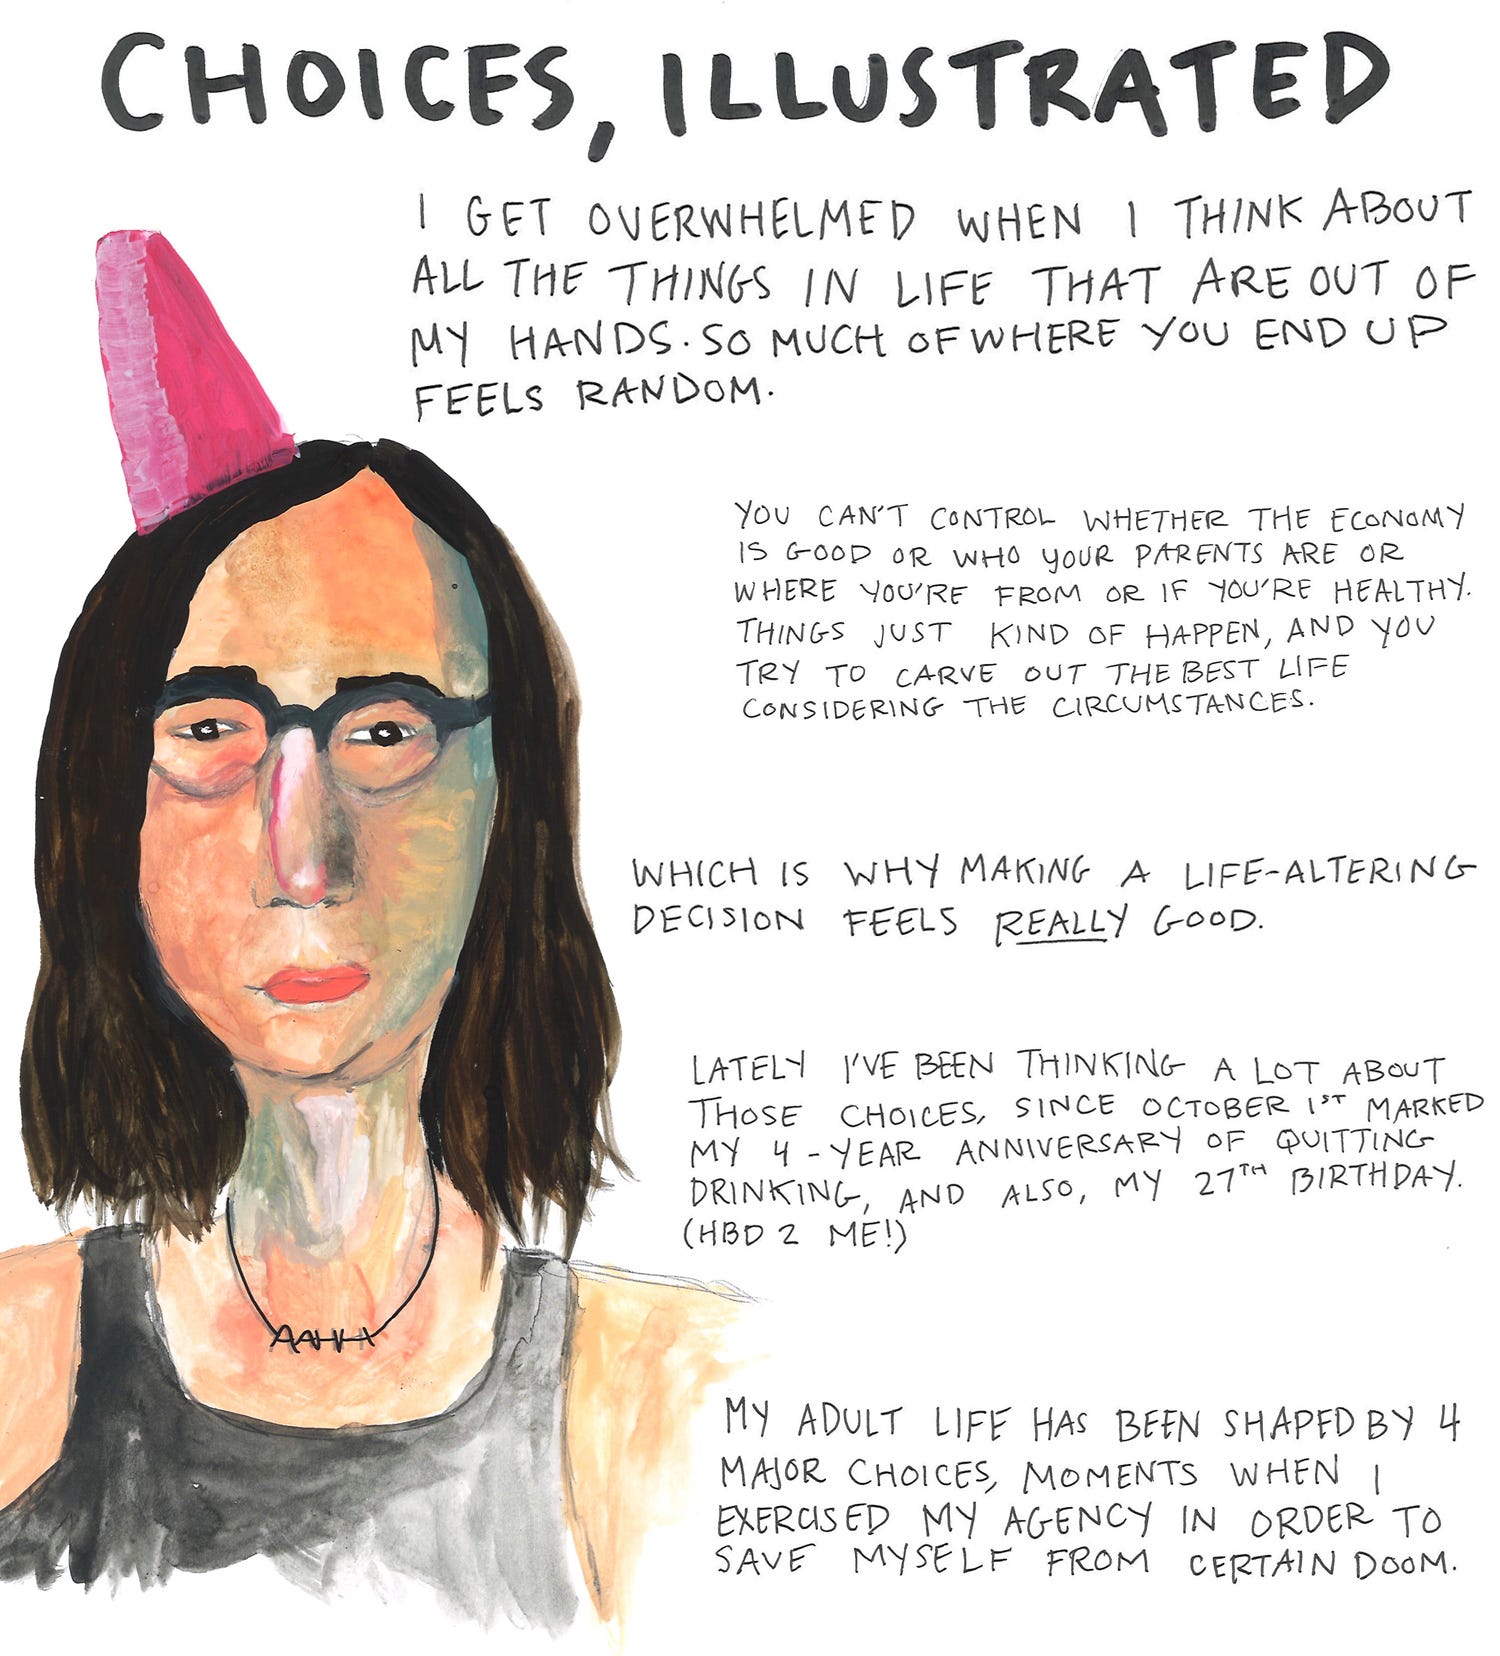 CHOICES, ILLUSTRATED
I GET OVERWHELMED WHEN I THINK ABOUT
ALL THE THINGS IN LIFE THAT ARE OUT OF
MY HANDS. SO MUCH OF WHERE YOU END UP
FEELS RANDOM.
YOU CAN'T CONTROL WHETHER THE ECONOMY
IS GOOD OR WHO YOUR PARENTS ARE OR
WHERE YOU'RE FROM OR IF YOU'RE HEALTHY.
THINGS JUST KIND OF HAPPEN, AND YOU
TRY TO CARVE OUT THE BEST LIFE
CONSIDERING THE CIRCUMSTANCES.
WHICH IS WHY MAKING A LIFE-ALTERING
DECISION FEELS REALLY GOOD.
LATELY I'VE BEEN THINKING A LOT ABOUT
THOSE CHOICES, SINCE OCTOBER 1ST MARKED
MY 4-YEAR ANNIVERSARY OF QUITTING
DRINKING, AND ALSO, MY 27TH BIRTHDAY.
(HBD 2 ME!)
AAHH
MY ADULT LIFE HAS BEEN SHAPED BY 4
MAJOR CHOICES, MOMENTS WHEN I
EXERCISED MY AGENCY IN ORDER TO
SAVE MYSELF FROM CERTAIN DOOM.